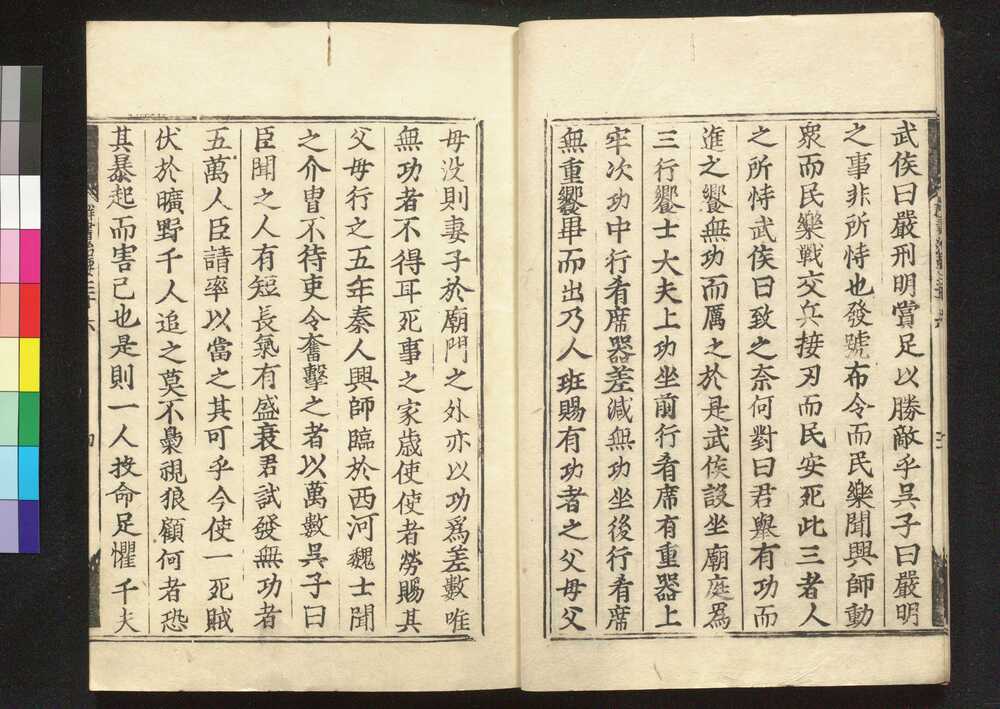 武侯曰嚴刑明賞足以勝敵乎吳子曰嚴明
之事非所恃也發號布令而民樂聞興師動
衆而民樂戰交兵接刃而民安死此三者人
之所恃武侯曰致之奈何對曰君舉有功而
進之饗無功而厲之於是武侯設坐廟庭爲
三行饗士大夫上功坐前行肴席有重器上
牢次功中行肴席器差減無功坐後行肴席
無重饗畢而出乃人班賜有功者之父母父
母没則妻子於廟門之外亦以功爲差數唯
無功者不得耳死事之家歳使使者勞賜其
父母行之五年秦人興師臨於西河魏士聞
之介冑不待吏令奮擊之者以萬數吳子曰
臣聞之人有短長氣有盛衰君試發無功者
五萬人臣請率以當之其可乎今使一死賊
伏於曠野千人追之莫不梟視狼顧何者恐
其暴起而害己也是則一人投命足懼千夫
群書治要三十六